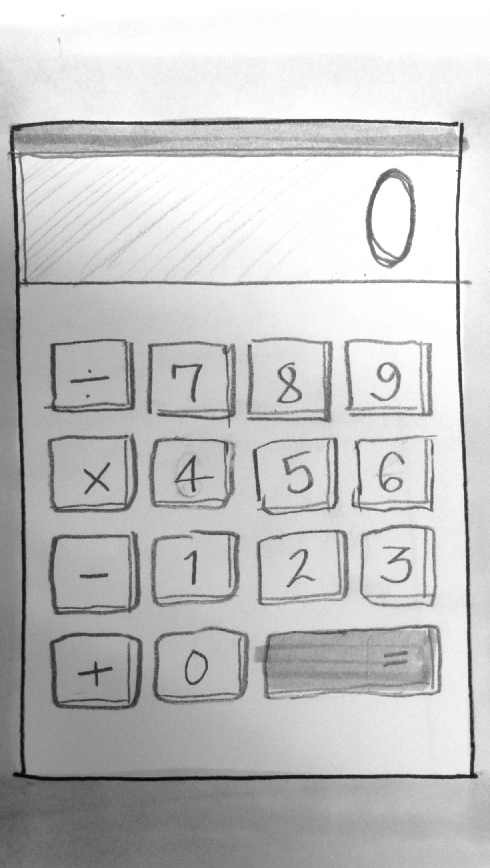 0
÷ 7 8 9
× 4 5 6
− 1 2 3
+ 0 =